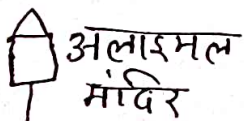 अलाइमल
मंदिर